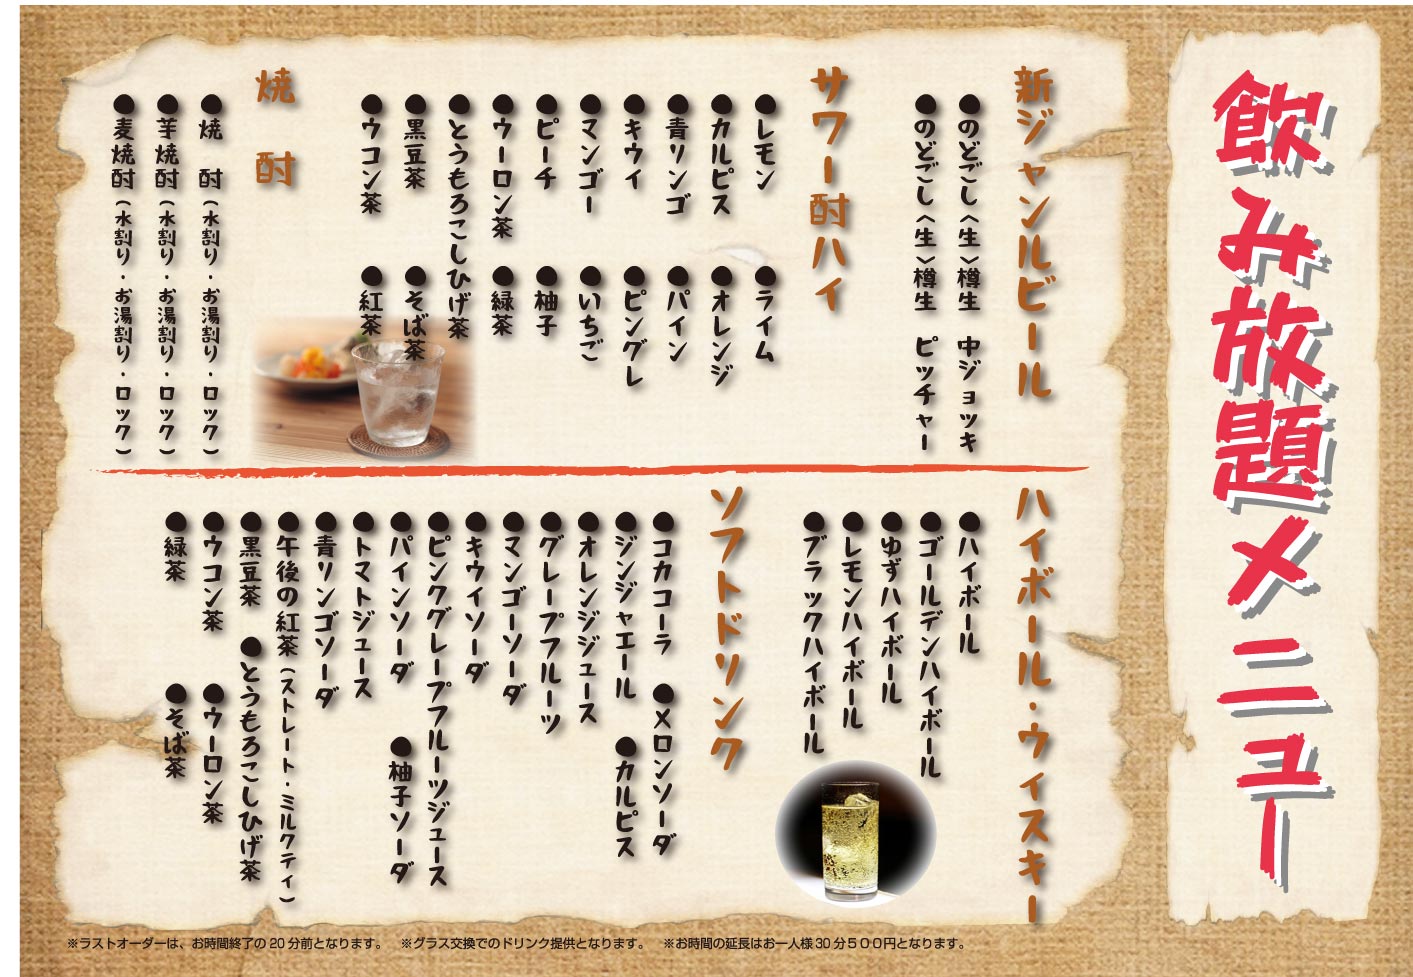 飲み放題メニュー
新ジャンルビール
●のどごし〈生〉樽生 中ジョッキ
●のどごし〈生〉樽生 ピッチャー
サワー酎ハイ
●レモン ●ライム
●カルピス ●オレンジ
●青リンゴ ●パイン
●キウイ ●ピングレ
●マンゴー ●いちご
●ピーチ ●柚子
●ウーロン茶 ●緑茶
●とうもろこしひげ茶
●黒豆茶 ●そば茶
●ウコン茶 ●紅茶
焼酎
●焼 酎(水割り・お湯割り・ロック)
●芋焼酎(水割り・お湯割り・ロック)
●麦焼酎(水割り・お湯割り・ロック)
ハイボール・ウィスキー
●ハイボール
●ゴールデンハイボール
●ゆずハイボール
●レモンハイボール
●ブラックハイボール
ソフトドリンク
●コカコーラ ●メロンソーダ
●ジンジャエール ●カルピス
●オレンジジュース
●グレープフルーツ
●マンゴーソーダ
●キウイソーダ
●ピンクグレープフルーツジュース
●パインソーダ ●柚子ソーダ
●トマトジュース
●青リンゴソーダ
●午後の紅茶(ストレート・ミルクティ)
●黒豆茶 ●とうもろこしひげ茶
●ウコン茶 ●ウーロン茶
●緑茶 ●そば茶
※ラストオーダーは、お時間終了の20分前となります。 ※グラス交換でのドリンク提供となります。 ※お時間の延長はお一人様30分500円となります。